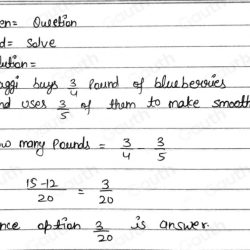 en= Question
d= Solve
lution=
aggi buys 3/4 Pound of blueberries
nd uses 3/5 of them to make smooth
ow many Pounds = 3/4 - 3/5
15-12/20 = 3/20
nce option 3/20 is answer.